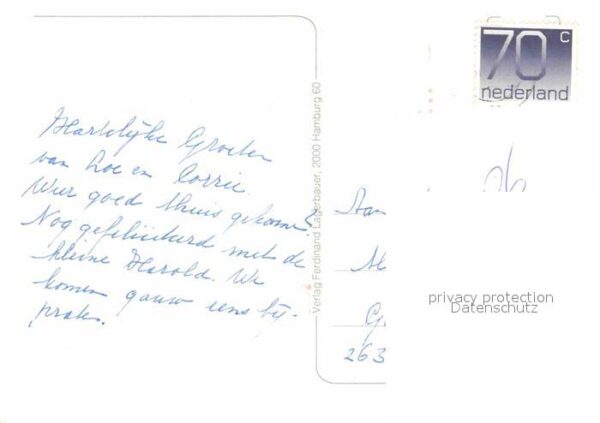 Hartelijke Groeten
van Loe en Corrie.
Weer goed thuis gekomen?
Nog gefeliciteerd met de
kleine Harold. We
komen gauw eens bij-
praten.
Verlag Ferdinand Lagerbauer, 2000 Hamburg 60
70 c
nederland
Aan
263
privacy protection
Datenschutz